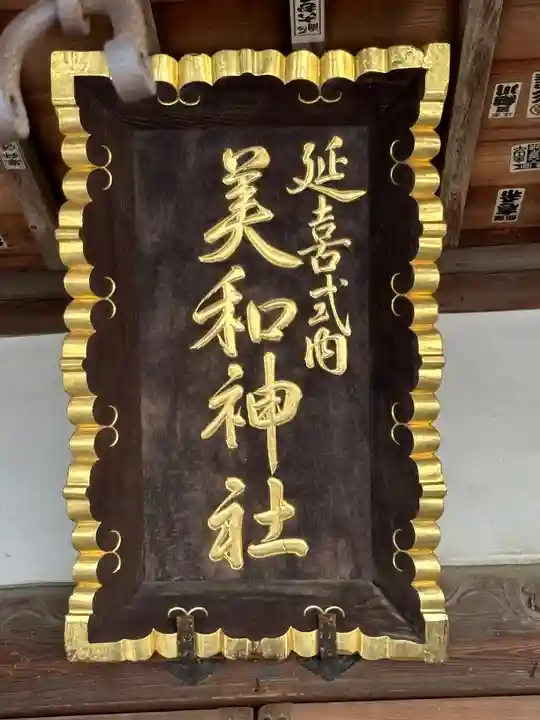 延喜式内
美和神社